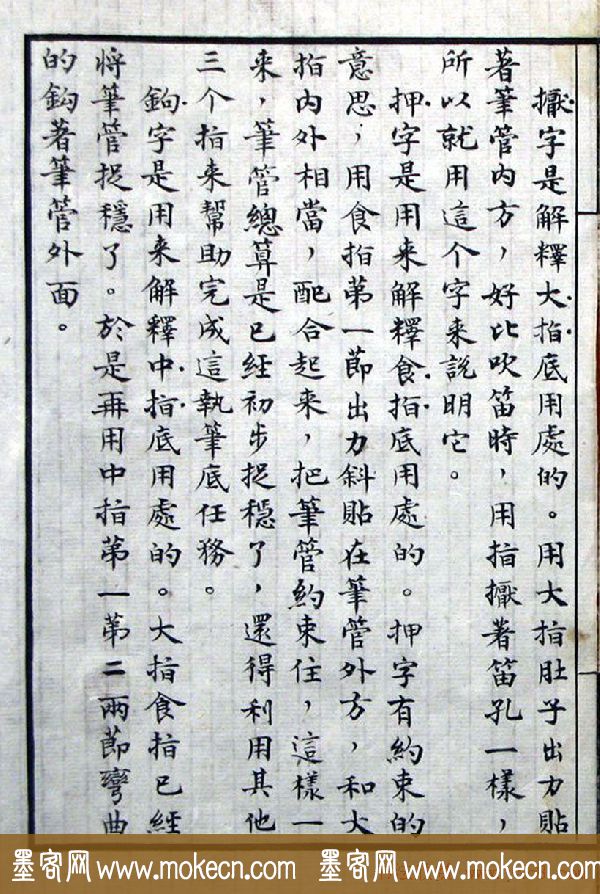 擫字是解釋大指底用處的。用大指肚子出力貼
著筆管内方，好比吹笛時，用指擫著笛孔一樣，
所以就用這个字来説明它。
押字是用来解釋食指底用處的。押字有約束的
意思，用食指第一節出力斜貼在筆管外方，和大
指内外相當，配合起来，把筆管約束住，這樣一
来，筆管總算是已經初步捉穩了，還得利用其他
三个指来幫助完成這執筆底任務。
鉤字是用来解釋中指底用處的。大指食指已經
将筆管捉穩了。於是再用中指第一第二兩節彎曲
的鉤著筆管外面。
墨客网 www.mokecn.com 墨客网 www.mokecn.com